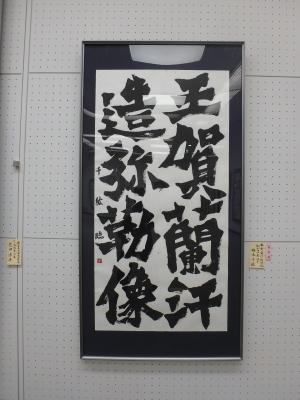 王賀蘭汗
造弥勒像